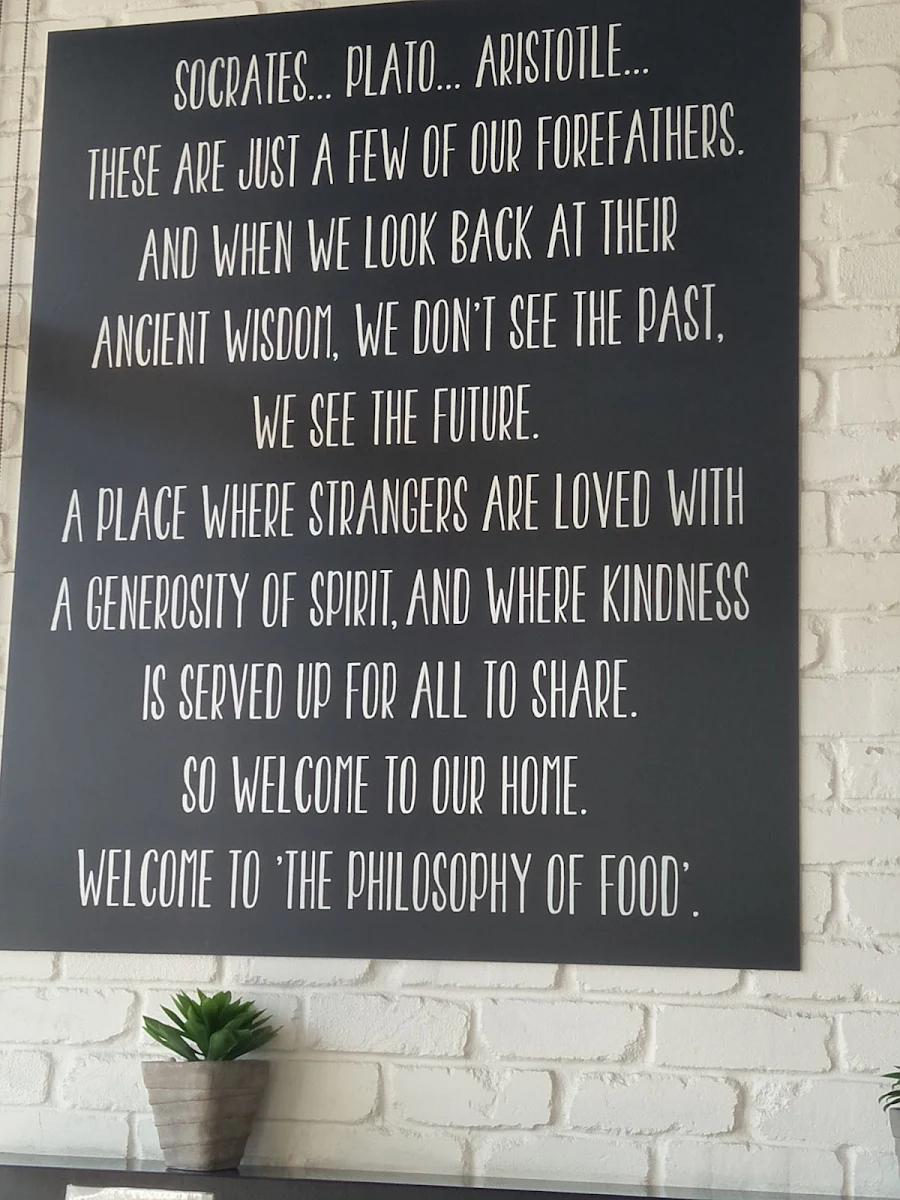 SOCRATES... PLATO... ARISTOTLE...
THESE ARE JUST A FEW OF OUR FOREFATHERS.
AND WHEN WE LOOK BACK AT THEIR
ANCIENT WISDOM, WE DON'T SEE THE PAST,
WE SEE THE FUTURE.
A PLACE WHERE STRANGERS ARE LOVED WITH
A GENEROSITY OF SPIRIT, AND WHERE KINDNESS
IS SERVED UP FOR ALL TO SHARE.
SO WELCOME TO OUR HOME.
WELCOME TO 'THE PHILOSOPHY OF FOOD'.